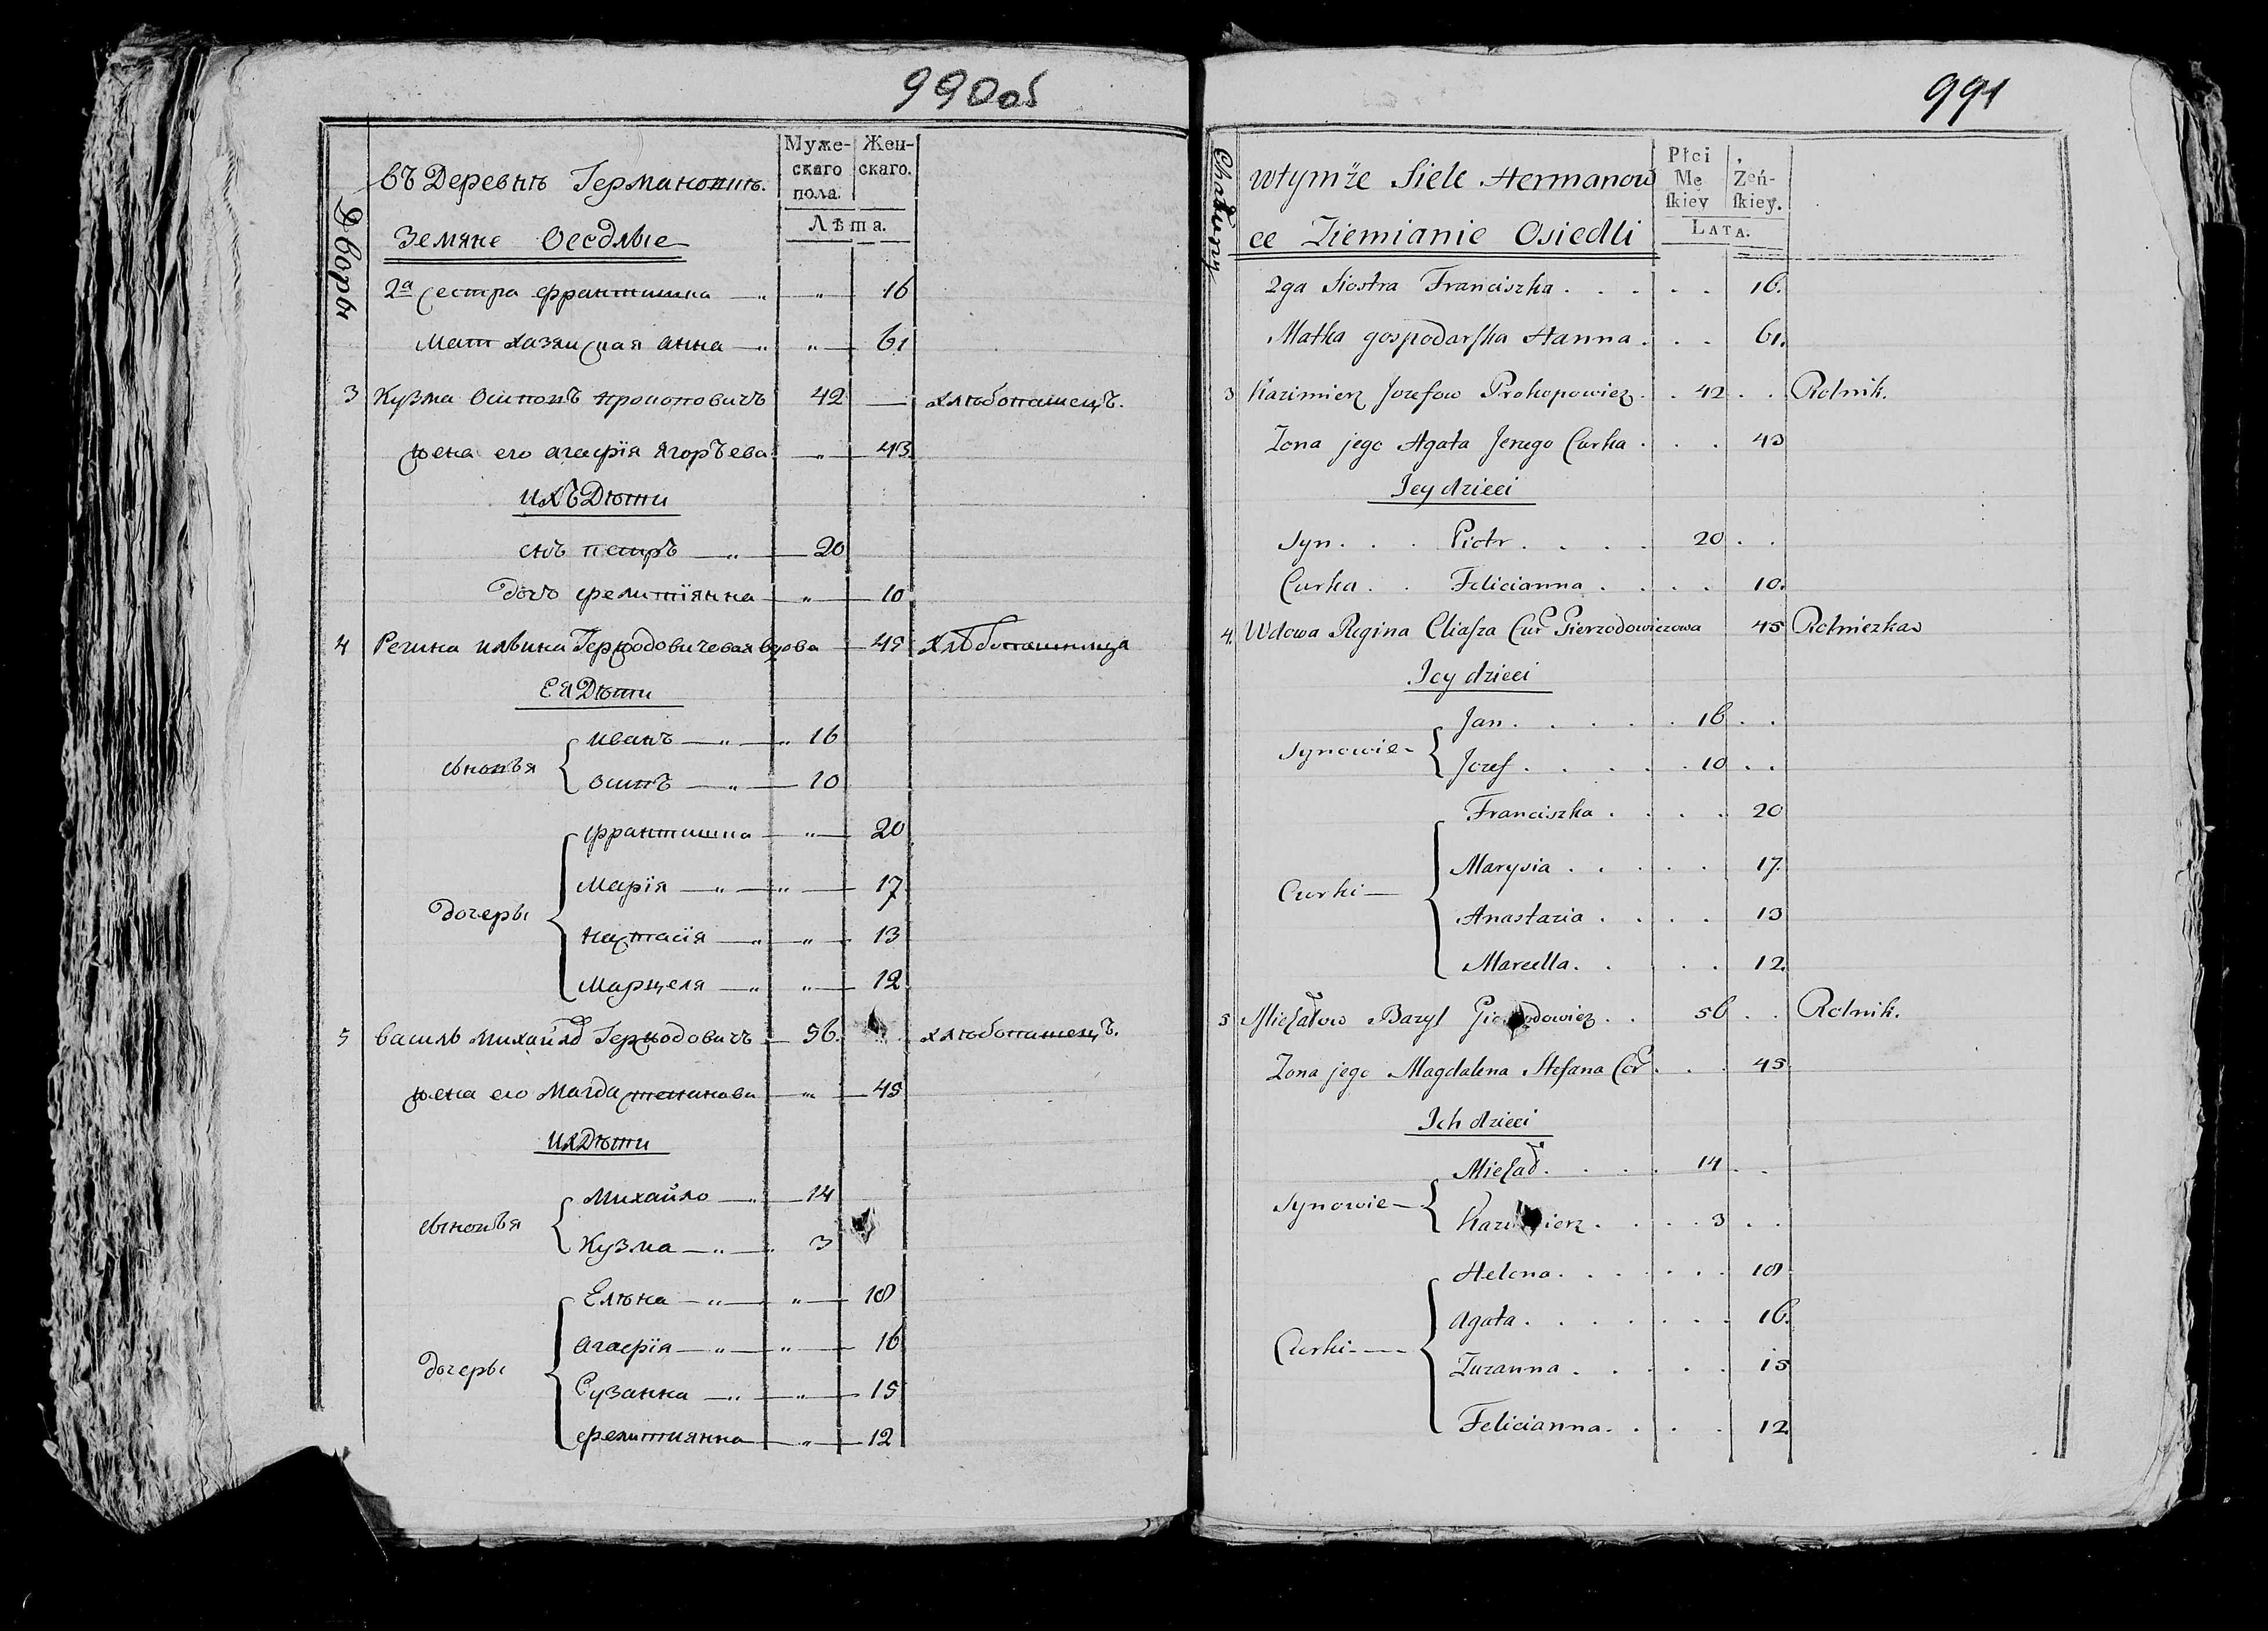 990об
Дворы
въ Деревнѣ Германовик.
Земяне Оседлые
Муже-
скаго
пола.
Жен-
скаго.
Лѣта.
2а сестра франтишка — " — " — 16
мат хазяиская анна — " — " — 61
3 Кузма Осиповъ прокоповичъ 42 — хлѣбопашецъ.
жена его агафія Ягоръева — " — 43
ихъ Дѣти
снъ петръ — " — 20
дочъ фелитіянна — " — 10
4 Регина ильина Гержодовичевая вдова — 45 хлѣбопашница
ЕЯ Дѣти
сыновья
иванъ — " — " 16
осипъ — " — 10
дочеры
франтишка — " — 20
Марія — " — " — 17
настасія — " — " — 13
марцеля — " — " — 12
5 василь михайло Гержодовичъ — 56. хлѣбопашецъ.
жена его магда степанова — " — 45
их Дѣти
сыновья
михайло — " — 14
Кузма — " — " 3
дочеры
Елѣна — " — " — 18
агафія — " — " — 16
Сузанна — " — " — 15
фелитиянна — " — 12
991
Chałupy
wtymże Siele Hermanow
ce Ziemianie Osiedli
Płci
Mę
skiey
Żeń-
skiey.
LATA.
2ga Siostra Franciszka . . . . . 16.
Matka gospodarska Hanna . . . 61.
3 Kazimierz Jozefow Prokopowicz . . 42 . . Rolnik.
Zona jego Agata Jerzego Curka . . . 43
Jey dzieci
Syn . . . Piotr . . . . . 20 . .
Curka . . Felicianna . . . . . 10.
4. Wdowa Regina Eliasza Cur Gierzodowiczowa 45 Rolniczka
Jey dzieci
Synowie —
Jan . . . . . . 16 . .
Jozef . . . . . . 10 . .
Curki —
Franciszka . . . . . 20
Marysia . . . . . 17.
Anastazia . . . . . 13
Marcella . . . . . 12.
5 Michałow Bazyl . . 56 . . Rolnik.
Zona jego Magdalena Stefana Cor . . . 45
Ich dzieci
Synowie —
Michał . . . . . 14 . .
Kazimierz . . . . 3 . .
Curki —
Helena . . . . . . . 18
Agata . . . . . . . 16.
Zuzanna . . . . . 15
Felicianna . . . . 12